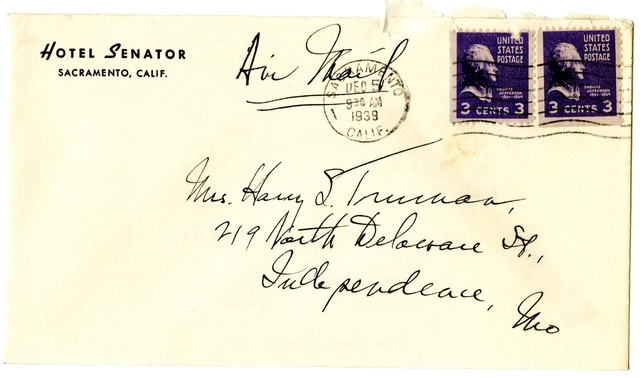 HOTEL SENATOR
SACRAMENTO, CALIF.
Air Mail
SACRAMENTO
DEC 5
930 AM
1939
CALIF.
1
UNITED
STATES
POSTAGE
THOMAS
JEFFERSON
1801-1809
3 CENTS 3
UNITED
STATES
POSTAGE
THOMAS
JEFFERSON
1801-1809
3 CENTS 3
Mrs. Harry S. Truman,
219 North Delaware St.,
Independence,
Mo